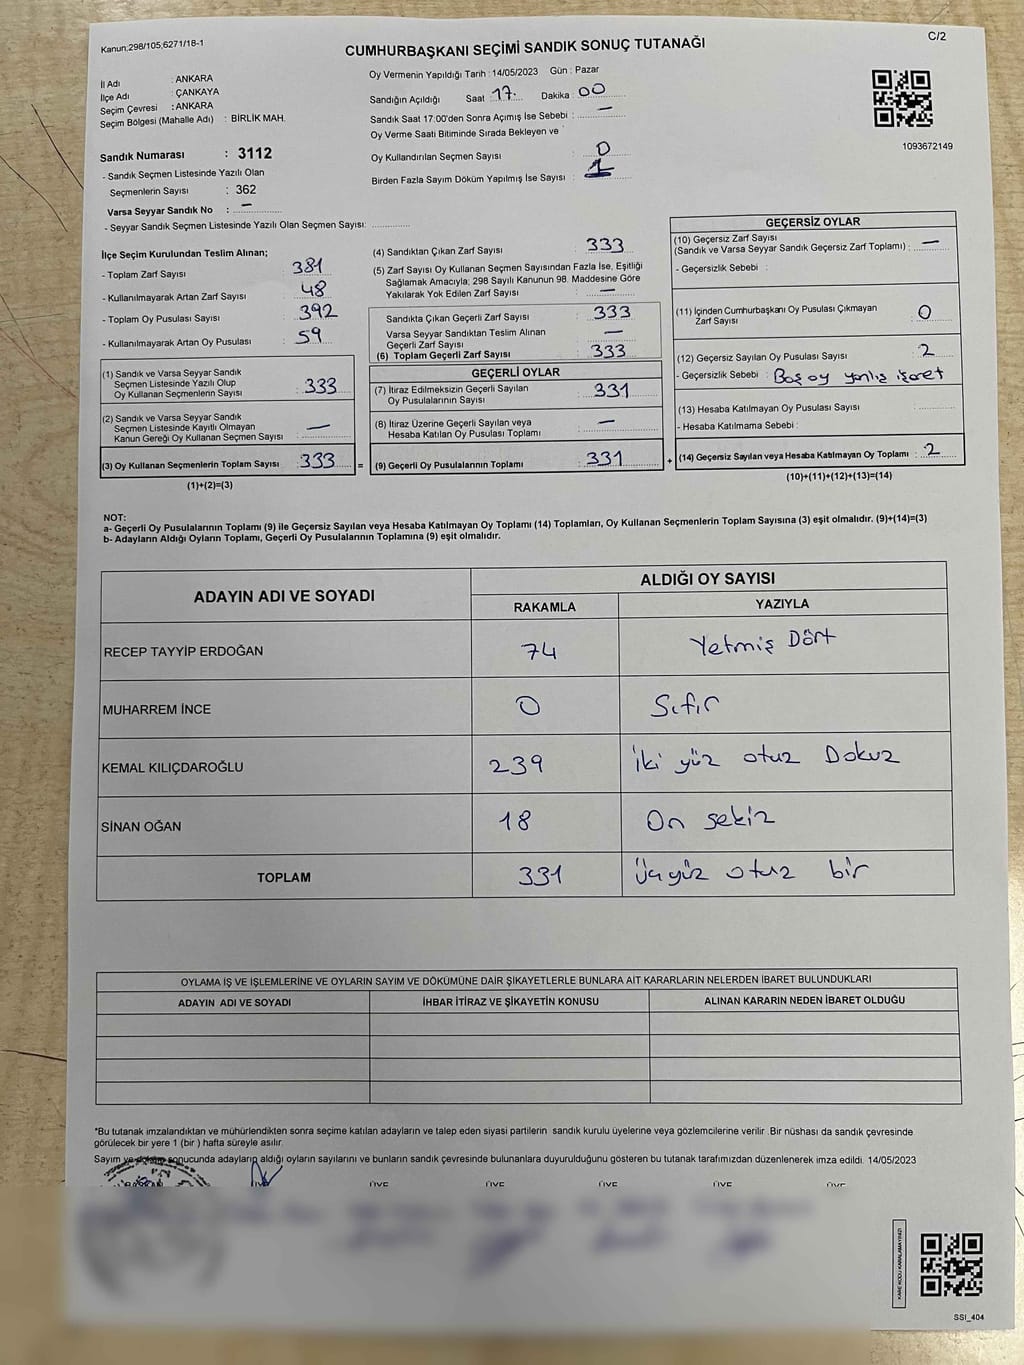 Kanun;298/105;6271/18-1
C/2
CUMHURBAŞKANI SEÇİMİ SANDIK SONUÇ TUTANAĞI
İl Adı : ANKARA
İlçe Adı : ÇANKAYA
Seçim Çevresi : ANKARA
Seçim Bölgesi (Mahalle Adı) : BİRLİK MAH.
Sandık Numarası : 3112
- Sandık Seçmen Listesinde Yazılı Olan
Seçmenlerin Sayısı : 362
Varsa Seyyar Sandık No : —
- Seyyar Sandık Seçmen Listesinde Yazılı Olan Seçmen Sayısı:
Oy Vermenin Yapıldığı Tarih : 14/05/2023 Gün : Pazar
Sandığın Açıldığı Saat : 17. Dakika : 00
Sandık Saat 17:00'den Sonra Açımış İse Sebebi : —
Oy Verme Saati Bitiminde Sırada Bekleyen ve
Oy Kullandırılan Seçmen Sayısı : 0
Birden Fazla Sayım Döküm Yapılmış İse Sayısı : 1
1093672149
İlçe Seçim Kurulundan Teslim Alınan;
- Toplam Zarf Sayısı : 381
- Kullanılmayarak Artan Zarf Sayısı : 48
- Toplam Oy Pusulası Sayısı : 392
- Kullanılmayarak Artan Oy Pusulası : 59
(1) Sandık ve Varsa Seyyar Sandık
Seçmen Listesinde Yazılı Olup
Oy Kullanan Seçmenlerin Sayısı : 333
(2) Sandık ve Varsa Seyyar Sandık
Seçmen Listesinde Kayıtlı Olmayan
Kanun Gereği Oy Kullanan Seçmen Sayısı : —
(3) Oy Kullanan Seçmenlerin Toplam Sayısı : 333 =
(1)+(2)=(3)
(4) Sandıktan Çıkan Zarf Sayısı : 333
(5) Zarf Sayısı Oy Kullanan Seçmen Sayısından Fazla İse, Eşitliği
Sağlamak Amacıyla; 298 Sayılı Kanunun 98. Maddesine Göre
Yakılarak Yok Edilen Zarf Sayısı : —
Sandıkta Çıkan Geçerli Zarf Sayısı : 333
Varsa Seyyar Sandıktan Teslim Alınan
Geçerli Zarf Sayısı : —
(6) Toplam Geçerli Zarf Sayısı : 333
GEÇERLİ OYLAR
(7) İtiraz Edilmeksizin Geçerli Sayılan
Oy Pusulalarının Sayısı : 331
(8) İtiraz Üzerine Geçerli Sayılan ve
Hesaba Katılan Oy Pusulası Toplamı : —
(9) Geçerli Oy Pusulalarının Toplamı : 331 +
GEÇERSİZ OYLAR
(10) Geçersiz Zarf Sayısı
(Sandık ve Varsa Seyyar Sandık Geçersiz Zarf Toplamı) : —
- Geçersizlik Sebebi :
(11) İçinden Cumhurbaşkanı Oy Pusulası Çıkmayan
Zarf Sayısı : 0
(12) Geçersiz Sayılan Oy Pusulası Sayısı : 2
- Geçersizlik Sebebi : Boş oy yanlış işaret
(13) Hesaba Katılmayan Oy Pusulası Sayısı :
- Hesaba Katılmama Sebebi :
(14) Geçersiz Sayılan veya Hesaba Katılmayan Oy Toplamı : 2
(10)+(11)+(12)+(13)=(14)
NOT:
a- Geçerli Oy Pusulalarının Toplamı (9) ile Geçersiz Sayılan veya Hesaba Katılmayan Oy Toplamı (14) Toplamları, Oy Kullanan Seçmenlerin Toplam Sayısına (3) eşit olmalıdır. (9)+(14)=(3)
b- Adayların Aldığı Oyların Toplamı, Geçerli Oy Pusulalarının Toplamına (9) eşit olmalıdır.
ADAYIN ADI VE SOYADI
ALDIĞI OY SAYISI
RAKAMLA YAZIYLA
RECEP TAYYİP ERDOĞAN 74 Yetmiş Dört
MUHARREM İNCE 0 Sıfır
KEMAL KILIÇDAROĞLU 239 iki yüz otuz Dokuz
SİNAN OĞAN 18 On sekiz
TOPLAM 331 üçyüz otuz bir
OYLAMA İŞ VE İŞLEMLERİNE VE OYLARIN SAYIM VE DÖKÜMÜNE DAİR ŞİKAYETLERLE BUNLARA AİT KARARLARIN NELERDEN İBARET BULUNDUKLARI
ADAYIN ADI VE SOYADI İHBAR İTİRAZ VE ŞİKAYETİN KONUSU ALINAN KARARIN NEDEN İBARET OLDUĞU
*Bu tutanak imzalandıktan ve mühürlendikten sonra seçime katılan adayların ve talep eden siyasi partilerin sandık kurulu üyelerine veya gözlemcilerine verilir .Bir nüshası da sandık çevresinde
görülecek bir yere 1 (bir ) hafta süreyle asılır.
Sayım ve döküm sonucunda adayların aldığı oyların sayılarını ve bunların sandık çevresinde bulunanlara duyurulduğunu gösteren bu tutanak tarafımızdan düzenlenerek imza edildi. 14/05/2023
BAŞKAN ÜYE ÜYE ÜYE ÜYE ÜYE ÜYE
KARE KODU KARALAMAYINIZ!
SSI_404